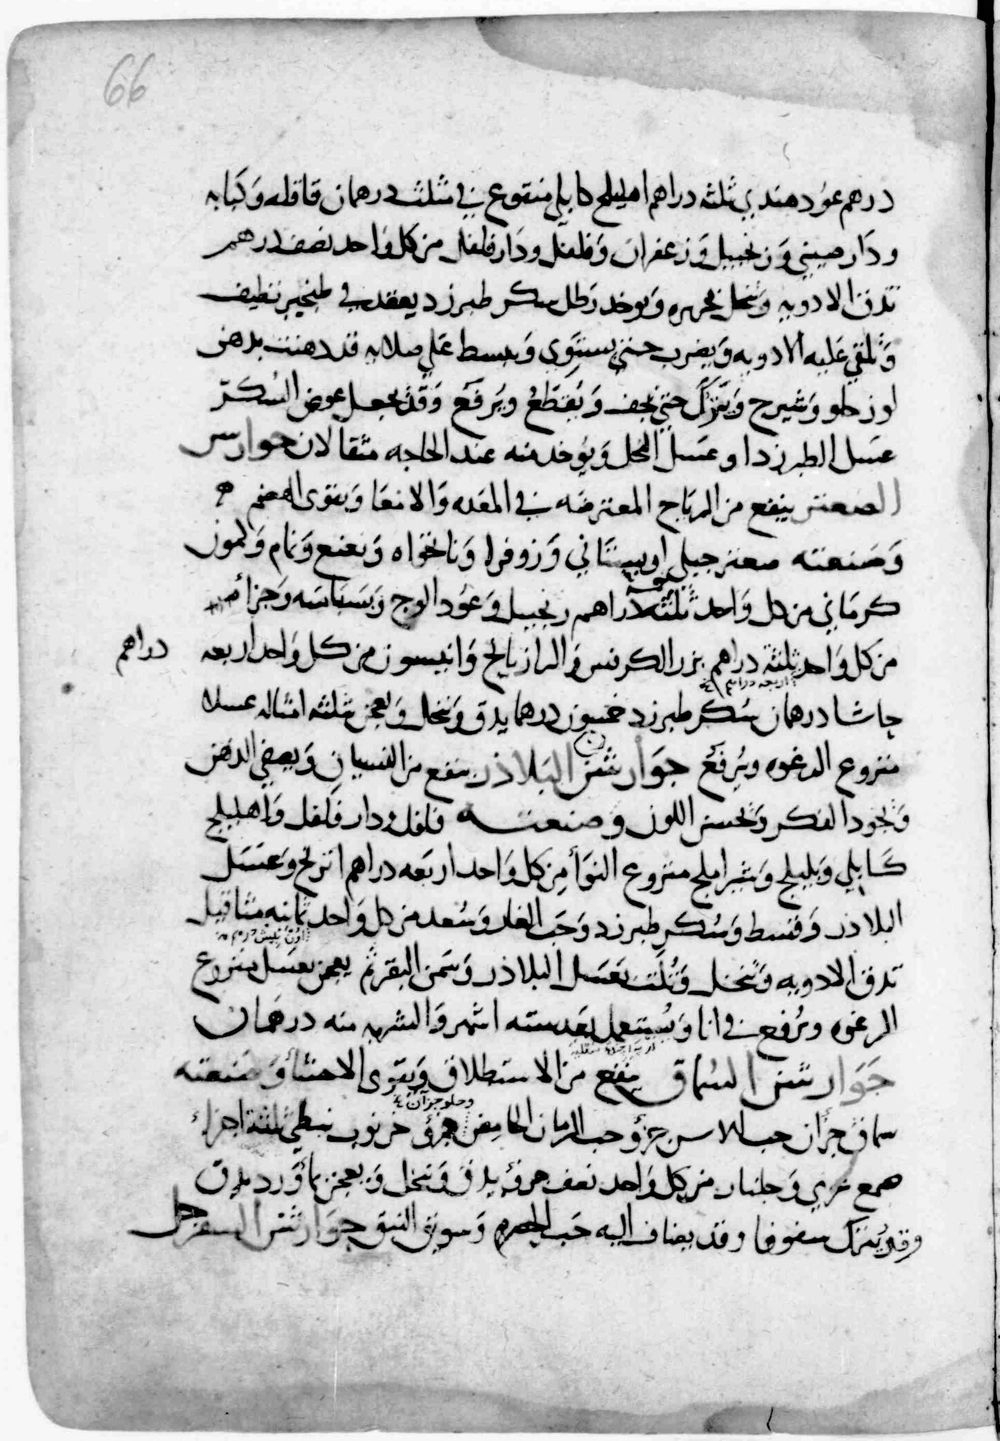 66
درهم عود هندي ثلثه دراهم اهليلج كابلي منقوع في مثلث درهمان قاقله وكبابه
ودار صيني وزنجبيل وزعفران وفلفل ودار فلفل من كل واحد نصف درهم
تدق الادويه وتنخل بحريره ويوخد رطل سكر طبرزد يعقد في طنجير نظيف
وتلقي عليه الادويه ويضرب حتي يستوي ويبسط علي صلايه قد دهنت بدهن
لوز حلو وشيرج ويترك حتي يجف ويقطع ويرفع وقد يجعل عوض السكر
عسل الطبرزد او عسل النحل ويوخد منه عند الحاجه مثقالان جوارس
الصعتر ينفع من الرياح المعترضه في المعده والامعا ويقوي الهضم
وصنعته صعتر جبلي او بيستاني وزوفرا ونانخواه ونعنع ونمام وكمون
كرماني من كل واحد ثلثه دراهم زنجبيل وعود الوج وبسباسه وجزأ
من كل واحد ثلثة دراهم بزر الكرفس والرازيانج وانيسون من كل واحد اربعه دراهم
اربعه دراهم
حاشا درهمان سكر طبرزد خمسون درهما يدق وينخل ويعجن بثلثه امثاله عسلا
منزوع الرغوه ويرفع جوارشن البلاذر ينفع من النسيان ويصفي الذهن
ويجود الفكر ويحسن اللون وصنعته فلفل ودار فلفل واهليلج
كابلي وبليلج وشير املج منزوع النوأ من كل واحد اربعه دراهم اترنج وعسل
البلاذر وقسط وسكر طبرزد وحب الغار وسعد من كل واحد ثمانيه مثاقيل
تدق الادويه وتنخل وتلت بعسل البلاذر وسمن البقر ثم يعجن بعسل منزوع
الرغوه ويرفع في انا ويستعمل بعد سته اشهر والشربه منه درهمان
جوارشن السماق ينفع من الاستطلاق ويقوي الاحشأ وصنعته
وحلو جزآن
سماق جزأن حب الاس جزؤ حب الرمان الحامض جزؤ خرنوب نبطي ثلثة اجزاء
صمغ عربي وجلنار من كل واحد نصف جزؤ يدق وينخل ويعجن بمأ ورد
وقد يترك سفوفا وقد يضاف اليه حب الحصرم وسويق النبق جوارشن السفرجل